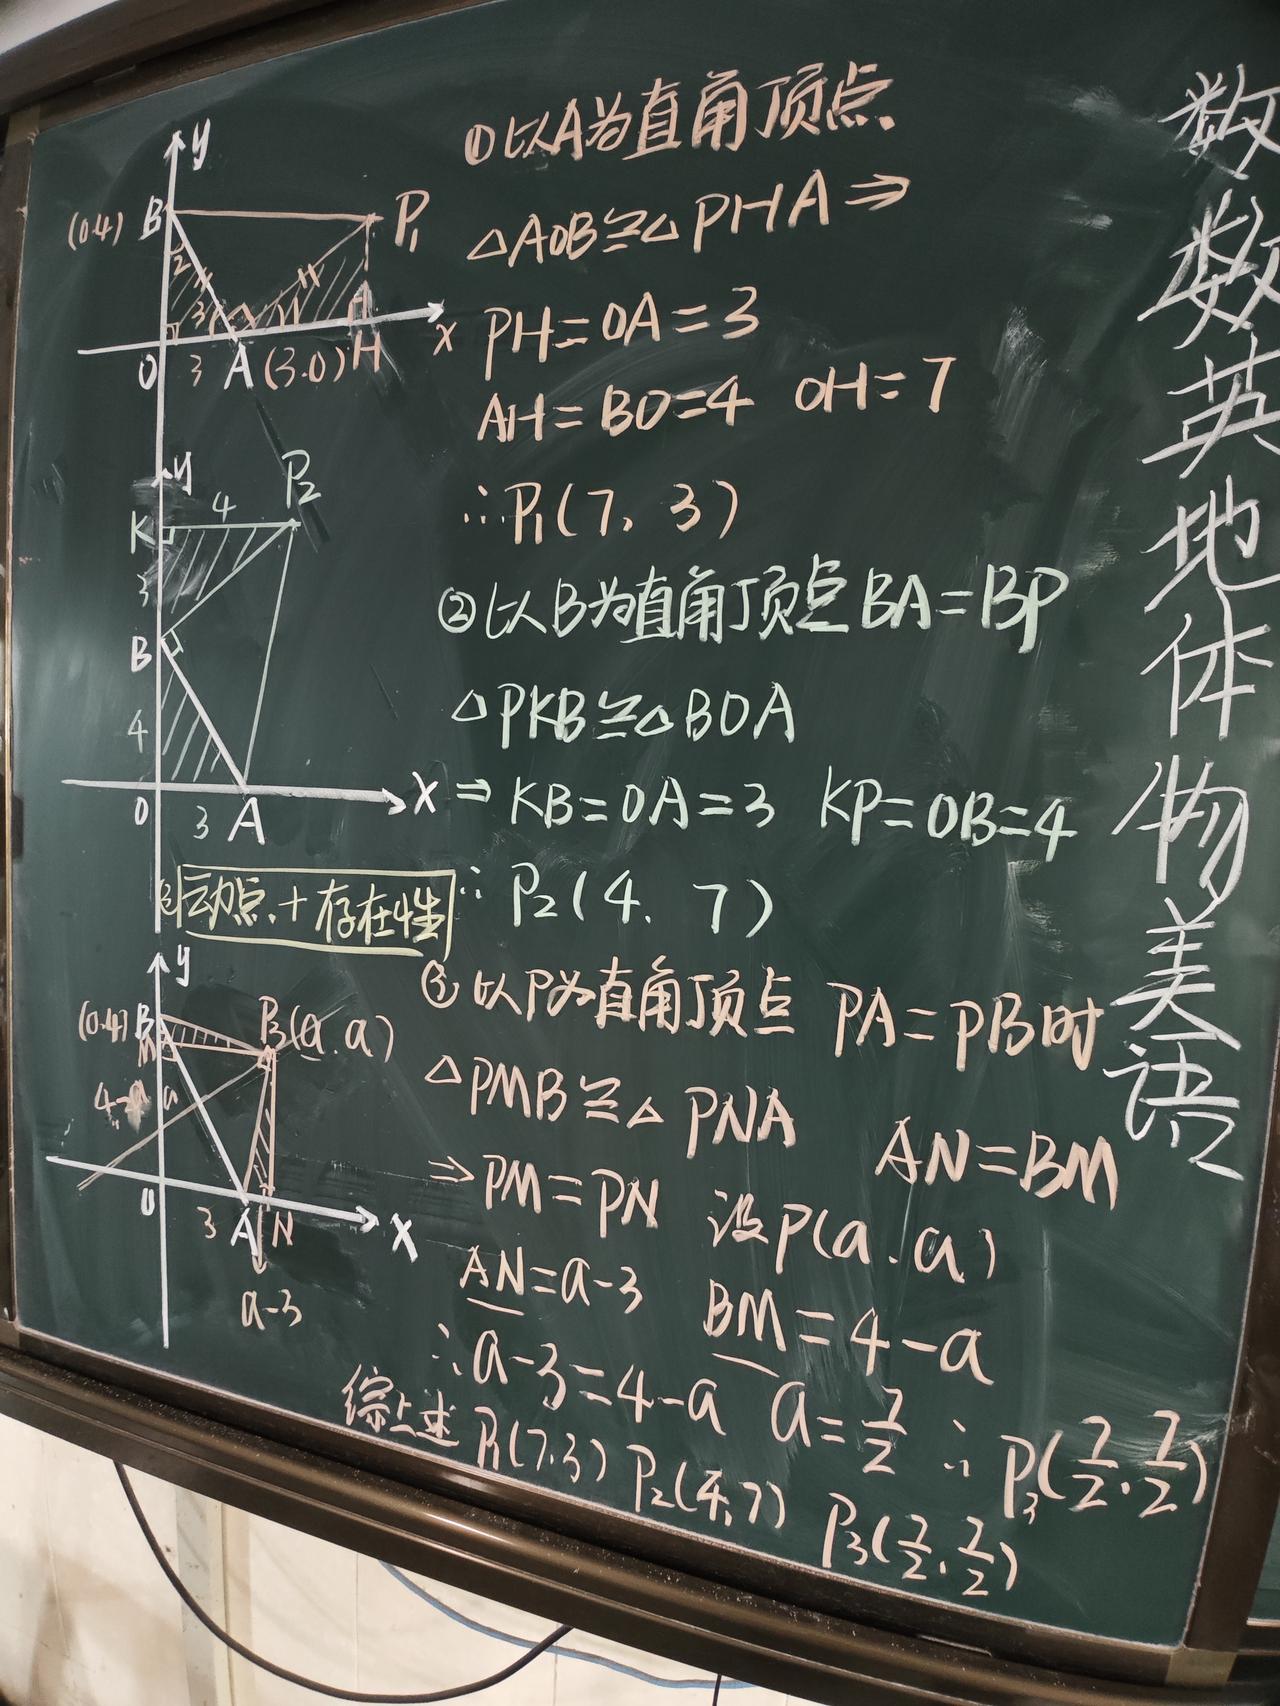 y
(0.4) B
P₁
2
3
H
O 3 A (3.0) H x
①以A为直角顶点.
△AOB≌△PHA⇒
PH=OA=3
AH=BO=4 OH=7
∴P₁(7, 3)
y
K 4 P₂
3
B
4
O 3 A x
②以B为直角顶点BA=BP
△PKB≌△BOA
⇒ KB=OA=3 KP=OB=4
∴ P₂(4. 7)
动点.+存在性
y
(0.4) B P₃(a.a)
M
4-a a
O 3 A N x
a-3
③以P为直角顶点 PA=PB时
△PMB≌△PNA
AN=BM
⇒PM=PN 设P(a.a)
AN=a-3 BM=4-a
∴a-3=4-a a=7/2 ∴P₃(7/2.7/2)
综上述 P₁(7.3) P₂(4,7) P₃(7/2.7/2)
数
数
英
地
体
物
美
语